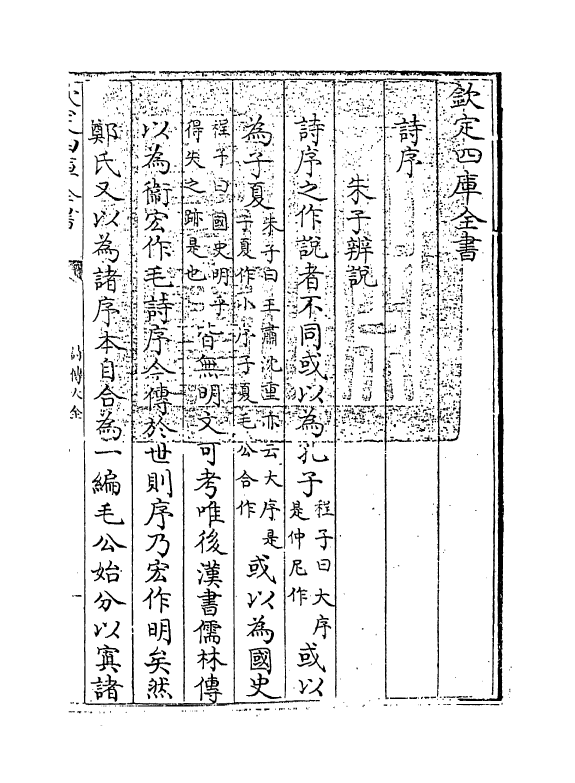 欽定四庫全書
詩序
朱子辨説
詩序之作說者不同或以為孔子程子曰大序是仲尼作或以
為子夏朱子曰王肅沈重亦云大序是子夏作小序子夏毛公合作或以為國史
程子曰國史明乎得失之跡是也皆無明文可考唯後漢書儒林傳
以為衞宏作毛詩序今傳於世則序乃宏作明矣然
鄭氏又以為諸序本自合為一編毛公始分以寘諸
詩傳大全